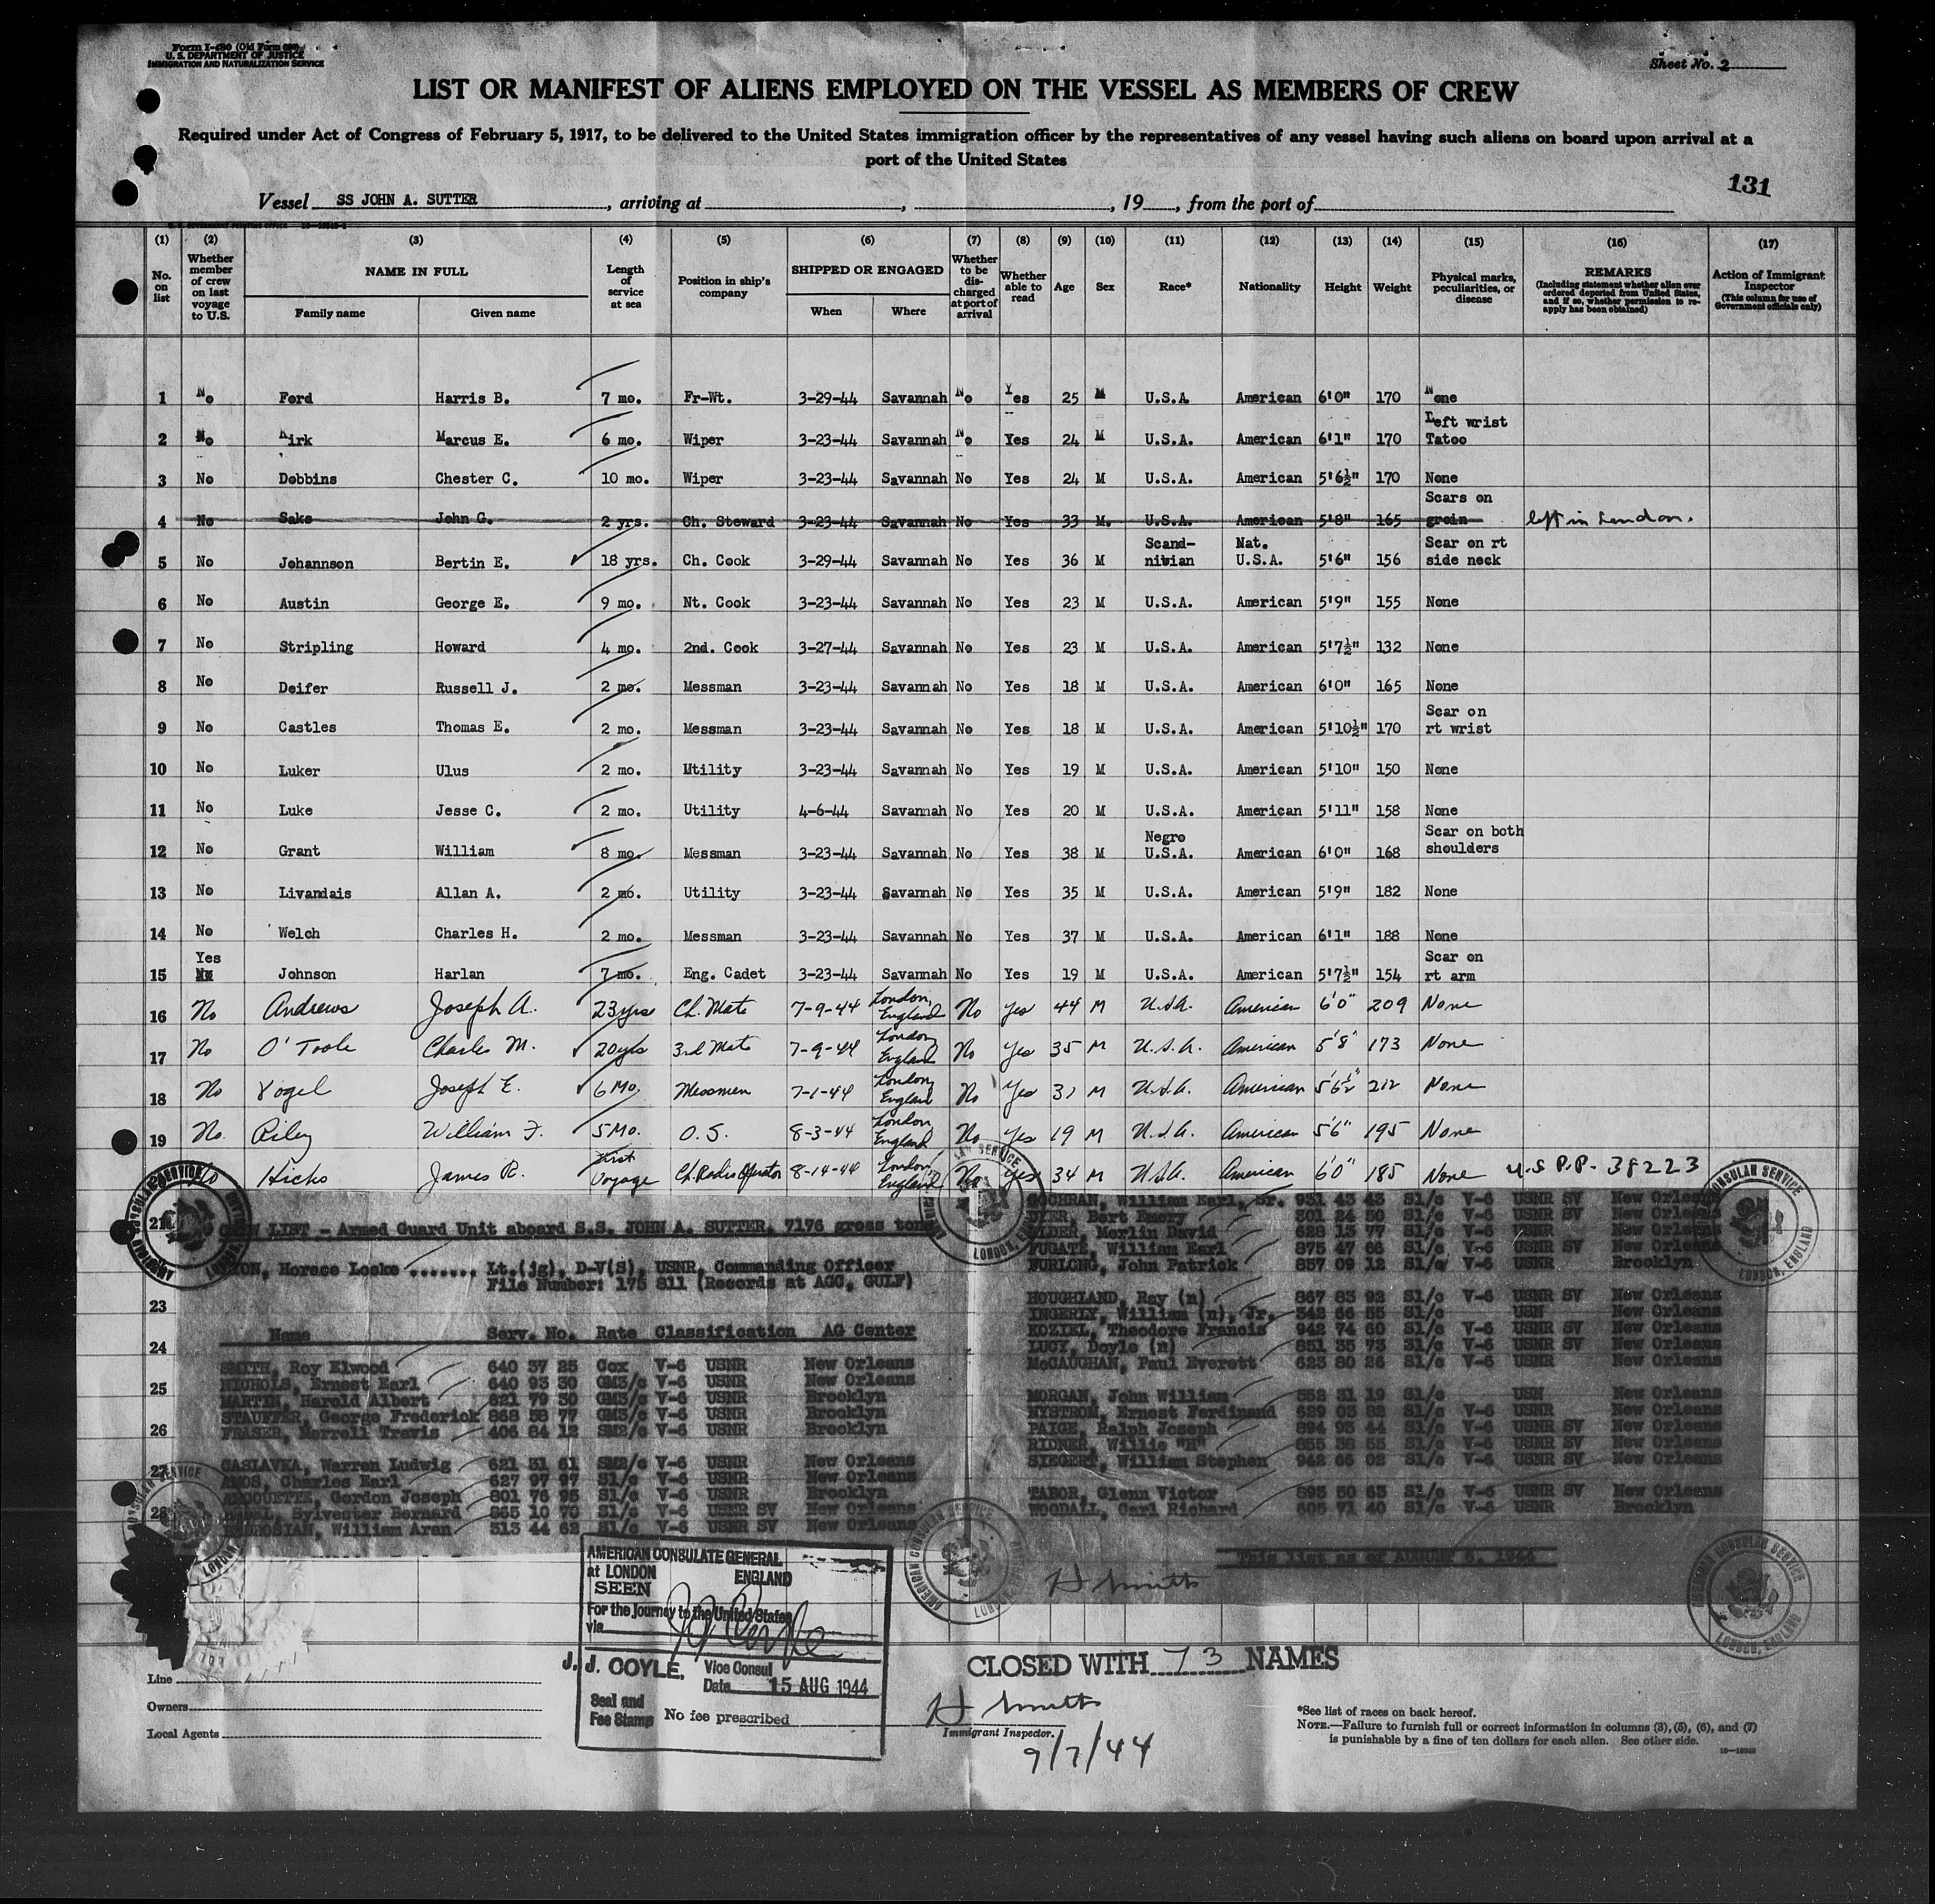 Form I-480 (Old Form 689)
U. S. DEPARTMENT OF JUSTICE
IMMIGRATION AND NATURALIZATION SERVICE
Sheet No. 2
LIST OR MANIFEST OF ALIENS EMPLOYED ON THE VESSEL AS MEMBERS OF CREW
Required under Act of Congress of February 5, 1917, to be delivered to the United States immigration officer by the representatives of any vessel having such aliens on board upon arrival at a
port of the United States
131
Vessel SS JOHN A. SUTTER, arriving at , , 19 , from the port of
(1) (2) (3) (4) (5) (6) (7) (8) (9) (10) (11) (12) (13) (14) (15) (16) (17)
No. on list
Whether member of crew on last voyage to U.S.
NAME IN FULL
Family name Given name
Length of service at sea
Position in ship's company
SHIPPED OR ENGAGED
When Where
Whether to be discharged at port of arrival
Whether able to read
Age
Sex
Race*
Nationality
Height
Weight
Physical marks, peculiarities, or disease
REMARKS
(Including statement whether alien ever ordered deported from United States, and if so, whether permission to reapply has been obtained)
Action of Immigrant Inspector
(This column for use of Government officials only)
1 No Ford Harris B. 7 mo. Fr-Wt. 3-29-44 Savannah No Yes 25 M U.S.A. American 6'0" 170 None
2 No Kirk Marcus E. 6 mo. Wiper 3-23-44 Savannah No Yes 24 M U.S.A. American 6'1" 170 Left wrist Tatoo
3 No Dobbins Chester C. 10 mo. Wiper 3-23-44 Savannah No Yes 24 M U.S.A. American 5'6½" 170 None
4 No Saks John G. 2 yrs. Ch. Steward 3-23-44 Savannah No Yes 33 M. U.S.A. American 5'8" 165 Scars on groin left in London.
5 No Johannson Bertin E. 18 yrs. Ch. Cook 3-29-44 Savannah No Yes 36 M Scand-nivian Nat. U.S.A. 5'6" 156 Scar on rt side neck
6 No Austin George E. 9 mo. Nt. Cook 3-23-44 Savannah No Yes 23 M U.S.A. American 5'9" 155 None
7 No Stripling Howard 4 mo. 2nd. Cook 3-27-44 Savannah No Yes 23 M U.S.A. American 5'7½" 132 None
8 No Deifer Russell J. 2 mo. Messman 3-23-44 Savannah No Yes 18 M U.S.A. American 6'0" 165 None
9 No Castles Thomas E. 2 mo. Messman 3-23-44 Savannah No Yes 18 M U.S.A. American 5'10½" 170 Scar on rt wrist
10 No Luker Ulus 2 mo. Mtility 3-23-44 Savannah No Yes 19 M U.S.A. American 5'10" 150 None
11 No Luke Jesse C. 2 mo. Utility 4-6-44 Savannah No Yes 20 M U.S.A. American 5'11" 158 None
12 No Grant William 8 mo. Messman 3-23-44 Savannah No Yes 38 M Negro U.S.A. American 6'0" 168 Scar on both shoulders
13 No Livandais Allan A. 2 mo. Utility 3-23-44 Savannah No Yes 35 M U.S.A. American 5'9" 182 None
14 No Welch Charles H. 2 mo. Messman 3-23-44 Savannah No Yes 37 M U.S.A. American 6'1" 188 None
15 Yes Johnson Harlan 7 mo. Eng. Cadet 3-23-44 Savannah No Yes 19 M U.S.A. American 5'7½" 154 Scar on rt arm
16 No Andrews Joseph A. 23 yrs Ch. Mate 7-9-44 London, England No Yes 44 M U.S.A. American 6'0" 209 None
17 No O'Toole Charles M. 20 yrs 3rd Mate 7-9-44 London England No Yes 35 M U.S.A. American 5'8" 173 None
18 No Vogel Joseph E. 6 Mo. Messman 7-1-44 London, England No Yes 31 M U.S.A. American 5'6½" 212 None
19 No. Riley William F. 5 Mo. O.S. 8-3-44 London England No Yes 19 M U.S.A. American 5'6" 195 None
No Hicks James R. First Voyage Ch. Radio Operator 8-14-44 London, England No Yes 34 M U.S.A. American 6'0" 185 None U.S P.P. - 38223
21 CREW LIST - Armed Guard Unit aboard S.S. JOHN A. SUTTER, 7176 gross tons
Horace Locke ....... Lt.(jg), D-V(S), USNR, Commanding Officer
File Number: 175 811 (Records at AGC, GULF)
23
Name Serv. No. Rate Classification AG Center
24
SMITH, Roy Elwood 640 37 25 Cox V-6 USNR New Orleans
NICHOLS, Ernest Earl 640 93 30 GM3/c V-6 USNR New Orleans
25
MARTIN, Harold Albert 621 79 30 GM3/c V-6 USNR Brooklyn
STAUFFER, George Frederick 868 58 77 GM3/c V-6 USNR Brooklyn
26
FRASER, Merrell Travis 406 84 12 SM2/c V-6 USNR Brooklyn
27
CASLAVKA, Warren Ludwig 621 31 61 SM2/c V-6 USNR New Orleans
AMOS, Charles Earl 627 97 97 S1/c V-6 USNR New Orleans
Gordon Joseph 801 76 95 S1/c V-6 USNR Brooklyn
28
Sylvester Bernard 865 10 70 S1/c V-6 USNR SV New Orleans
William Aran 313 44 62 S1/c V-6 USNR SV New Orleans
COCHRAN, William Earl, Sr. 931 43 43 S1/c V-6 USNR SV New Orleans
Bert Emery 301 24 50 S1/c V-6 USNR SV New Orleans
Merlin David 628 13 77 S1/c V-6 USNR New Orleans
FUGATE, William Earl 875 47 66 S1/c V-6 USNR SV New Orleans
FURLONG, John Patrick 857 09 12 S1/c V-6 USNR Brooklyn
HOUGHLAND, Ray (n) 867 83 92 S1/c V-6 USNR SV New Orleans
INGERLY, William (n), Jr. 342 66 55 S1/c USN New Orleans
KOZIEL, Theodore Francis 942 74 60 S1/c V-6 USNR SV New Orleans
LUCY, Doyle (n) 851 35 73 S1/c V-6 USNR SV New Orleans
McCAUGHAN, Paul Everett 623 80 26 S1/c V-6 USNR New Orleans
MORGAN, John William 552 31 19 S1/c USN New Orleans
NYSTROM, Ernest Ferdinand 629 03 82 S1/c V-6 USNR New Orleans
PAIGE, Ralph Joseph 894 95 44 S1/c V-6 USNR SV New Orleans
RIDNER, Willie "H" 855 36 55 S1/c V-6 USNR SV New Orleans
SIEGERT, William Stephen 942 66 02 S1/c V-6 USNR SV New Orleans
TABOR, Glenn Victor 593 50 63 S1/c V-6 USNR SV New Orleans
WOODALL, Carl Richard 605 71 40 S1/c V-6 USNR Brooklyn
This list as of AUGUST 6, 1944
H Smith
AMERICAN CONSULATE GENERAL
at LONDON ENGLAND
SEEN
For the journey to the United States
via
J. J. COYLE. Vice Consul
Date 15 AUG 1944
Seal and
Fee Stamp No fee prescribed
Line
Owners
Local Agents
CLOSED WITH 73 NAMES
H Smith
Immigrant Inspector.
9/7/44
*See list of races on back hereof.
NOTE.—Failure to furnish full or correct information in columns (3), (5), (6), and (7)
is punishable by a fine of ten dollars for each alien. See other side.